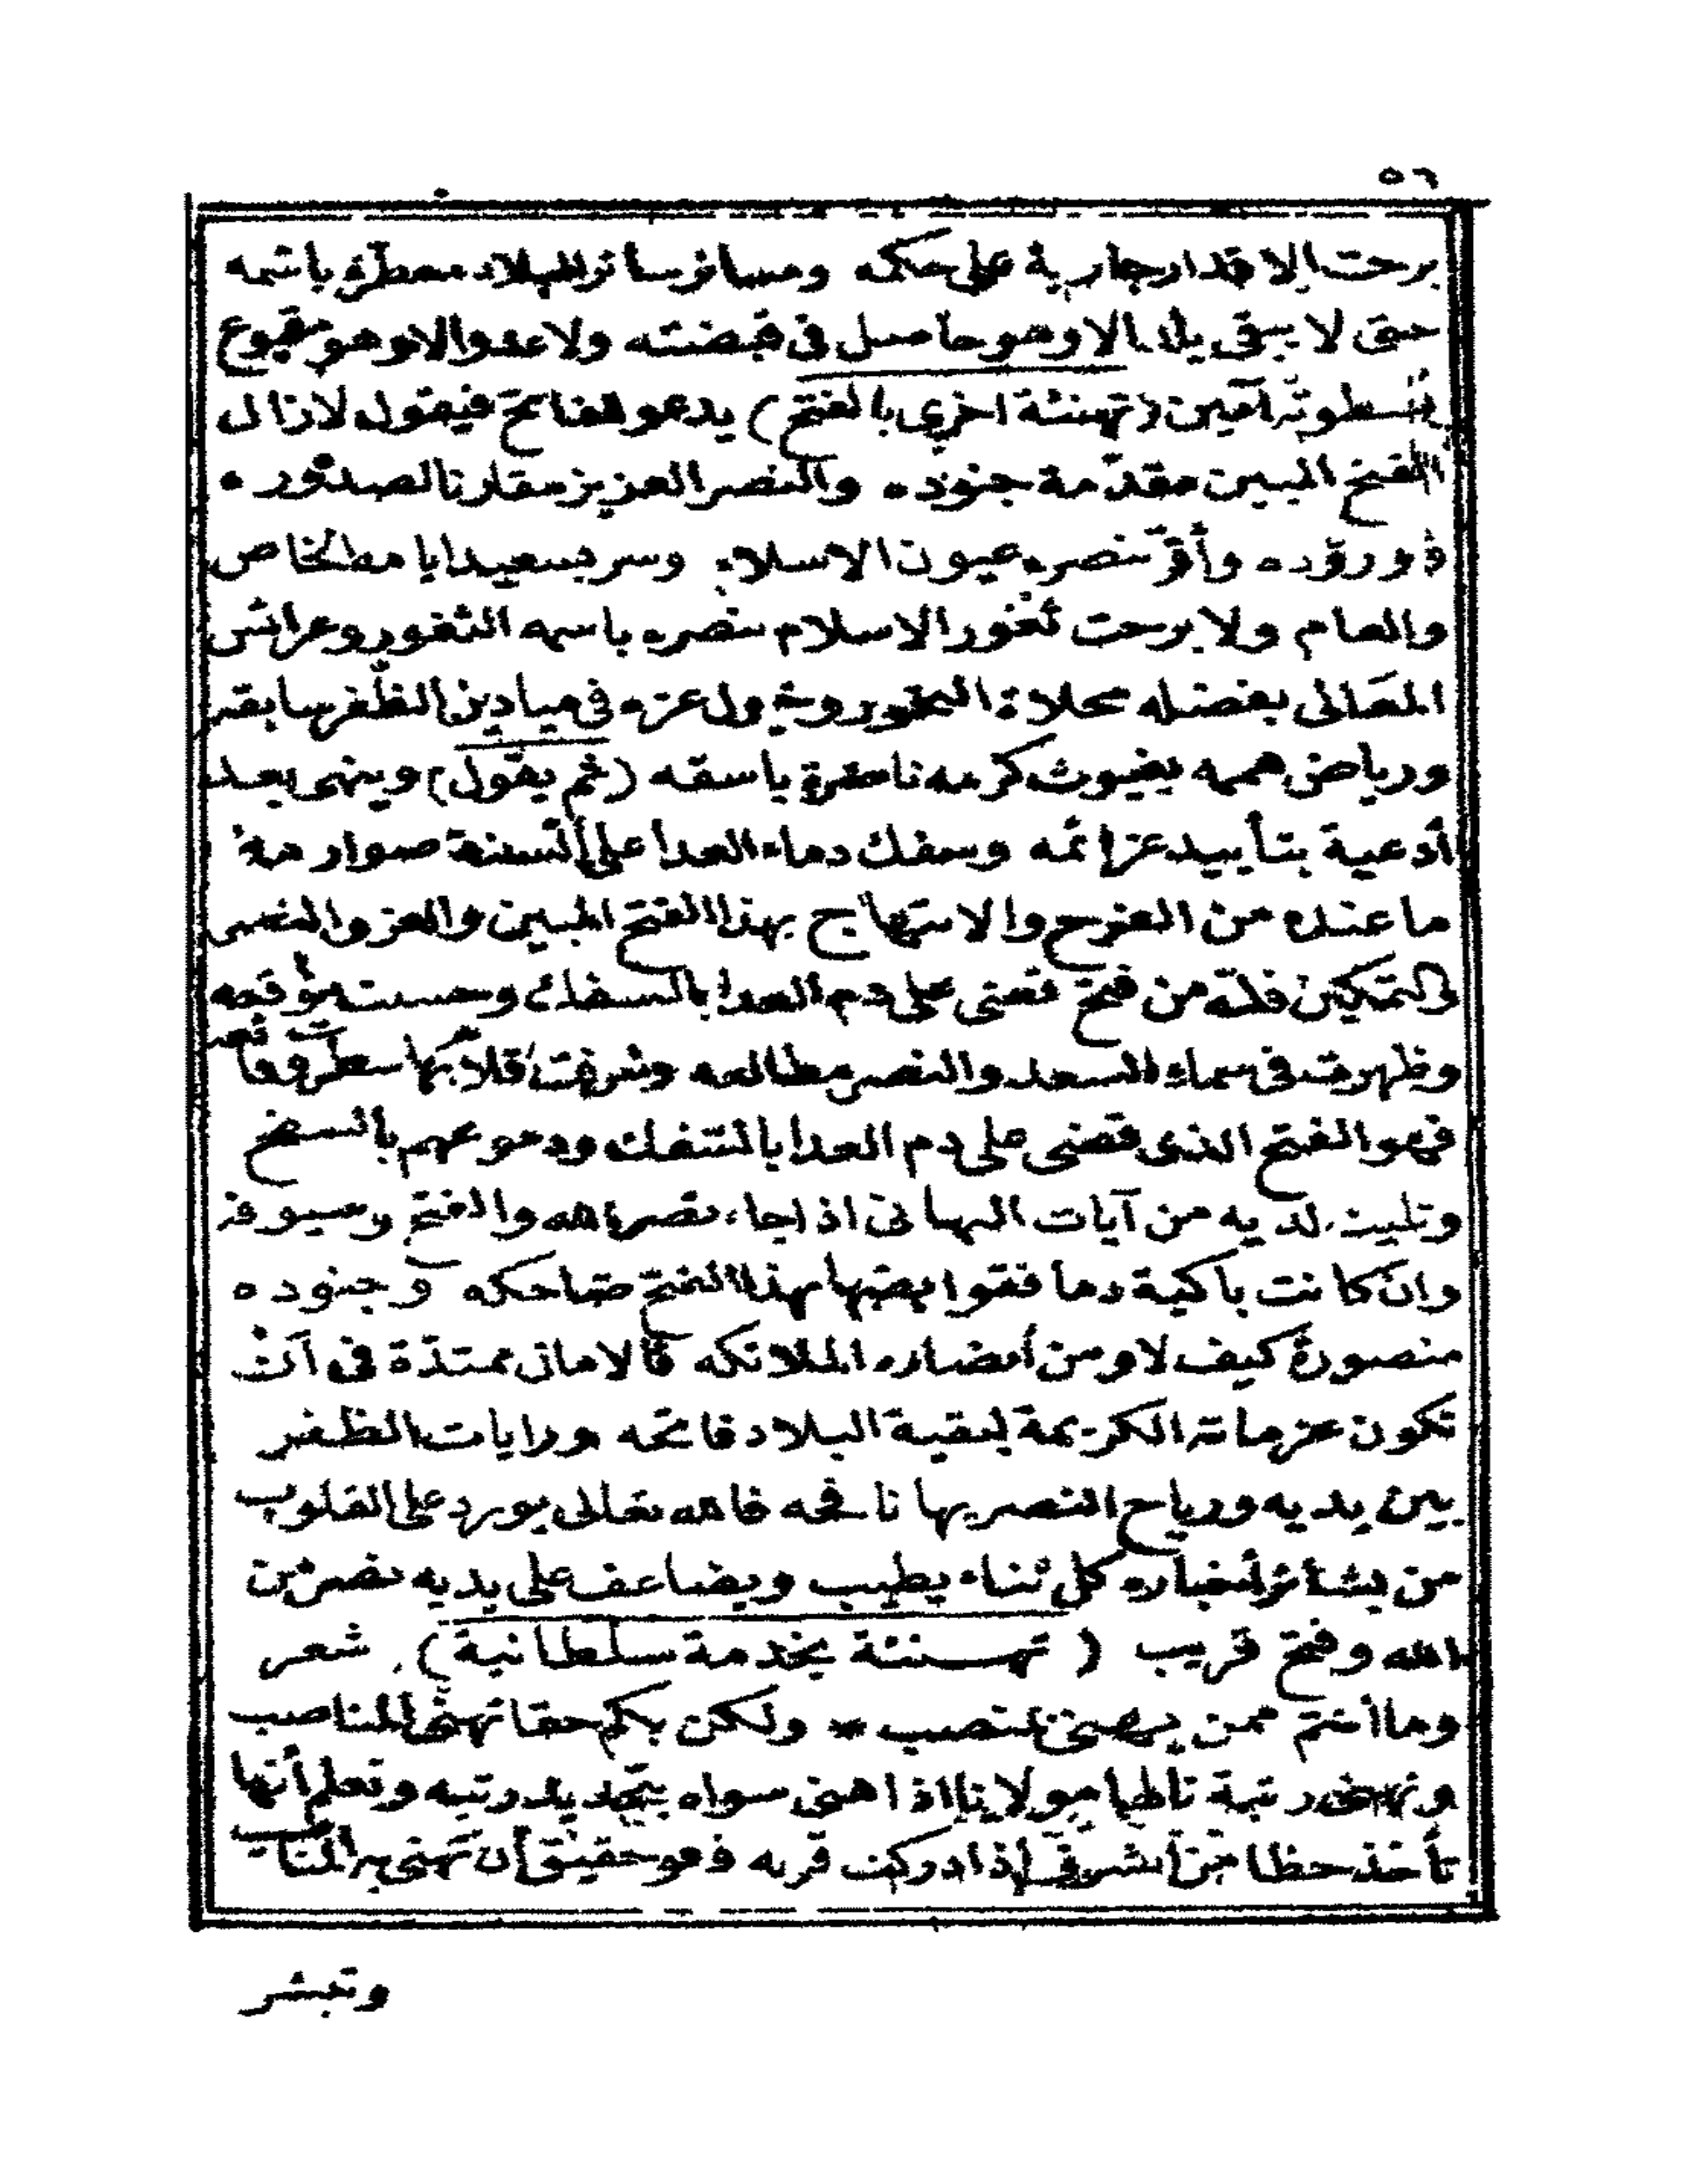 ٥٦
برحت الاقدار جارية على حكمه وسائر البلاد معطرة باسمه
حتى لا يبقى بلد الا وهو حاصل فى قبضته ولا عدو الا وهو مقموع
بسطوته آمين (تهنئة اخرى بالفتح) يدعو للفاتح فيقول لا زال
الفتح المبين مقدّمة جنوده والنصر العزيز مقارنا لصدوره
و وروده وأقرّ بنصره عيون الاسلام وسر بسعيد ايامه الخاص
والعام ولا برحت ثغور الاسلام بنصره باسمه الثغور وعرائس
المعالى بفضله محلاة النحور وخيول عزه فى ميادين الظفر سابقه
ورياض هممه بغيوث كرمه ناضرة باسقه (ثم يقول) وينهى بعد
أدعية بتأييد عزائمه وسفك دماء العدا على ألسنة صوارمه
ما عنده من الفرح والابتهاج بهذا الفتح المبين والعز والنصر
والتمكين فلله من فتح قضى على دم العدا بالسفك وحسنت موقعه
وظهرت فى سماء السعد والنصر مطالعه وشرفت أقلام بها سطرت وقائعه
فهو الفتح الذى قضى على دم العدا بالسفك ودموعهم بالسفح
وتليت لديه من آيات التهانى اذا جاء نصر الله والفتح وسيوفه
وان كانت باكية دما فقواضبها بهذا الفتح ضاحكه وجنوده
منصورة كيف لا ومن أنصاره الملائكه فالامانى ممتدّة فى أن
تكون عزماته الكريمة لبقية البلاد فاتحه ورايات الظفر
بين يديه ورياح النصر بها نافحه فالله تعالى يورد على القلوب
من بشائر أخباره كل ثناء يطيب ويضاعف على يديه نصر من
الله وفتح قريب (تهنئة بخدمة سلطانية) شعر
وما أنتم ممن يهنى بمنصب * ولكن بكم حقا تهنى المناصب
ونهنى رتبة ناطها مولانا اذا هنى سواه بتجديد رتبه وتعلم أنها
تأخذ حظا من الشرف اذا دركت قربه فهو حقيق أن تهنى به المناصب
وتبشر